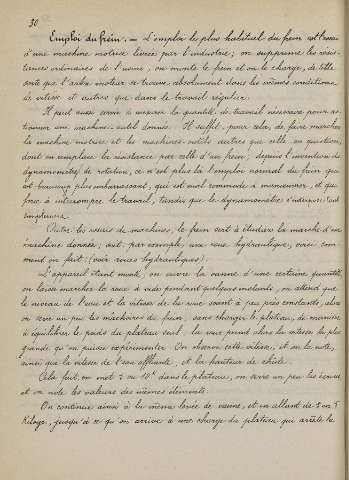 30
Emploi du frein. — L'emploi le plus habituel du frein est l'essai
d'une machine motrice livrée par l'industrie ; on supprime les résis-
tances ordinaires de l'usine, on monte le frein et on le charge, de telle
sorte que l'arbre moteur se trouve absolument dans les mêmes conditions
de vitesse et autres que dans le travail régulier.
Il peut aussi servir à mesurer la quantité de travail nécessaire pour ac-
tionner une machine-outil donnée. Il suffit, pour cela, de faire marcher
la machine motrice et les machines-outils autres que celle en question,
dont on remplace la résistance par celle d'un frein ; depuis l'invention des
dynamomètres de rotation, ce n'est plus là l'emploi normal du frein qui
est beaucoup plus embarrassant, qui est mal commode à manœuvrer, et qui
force à interrompre le travail, tandis que le dynamomètre
Outre les essais de machines, le frein sert à étudier la marche d'une
machine donnée, soit par exemple, une roue hydraulique, voici com-
ment on fait : (voir roues hydrauliques).
L'appareil étant monté, on ouvre la vanne d'une certaine quantité,
on laisse marcher la roue à vide pendant quelques instants, on attend que
le niveau de l'eau et la vitesse de la roue soient à peu près constants, alors
on serre un peu les mâchoires du frein, sans charger le plateau, de manière
à équilibrer le poids du plateau seul, la roue prend alors la vitesse la plus
grande qu'on puisse expérimenter. On observe cette vitesse, et on la note,
ainsi que la vitesse de l'eau affluente, et la hauteur de chûte.
Cela fait, on met 5 ou 10ᵏ dans le plateau, on serre un peu les écrous
et on note les valeurs des mêmes éléments.
On continue ainsi à la même levée de vanne, et en allant de 5 en 5
Kilogs, jusqu'à ce qu'on arrive à une charge du plateau qui arrête la